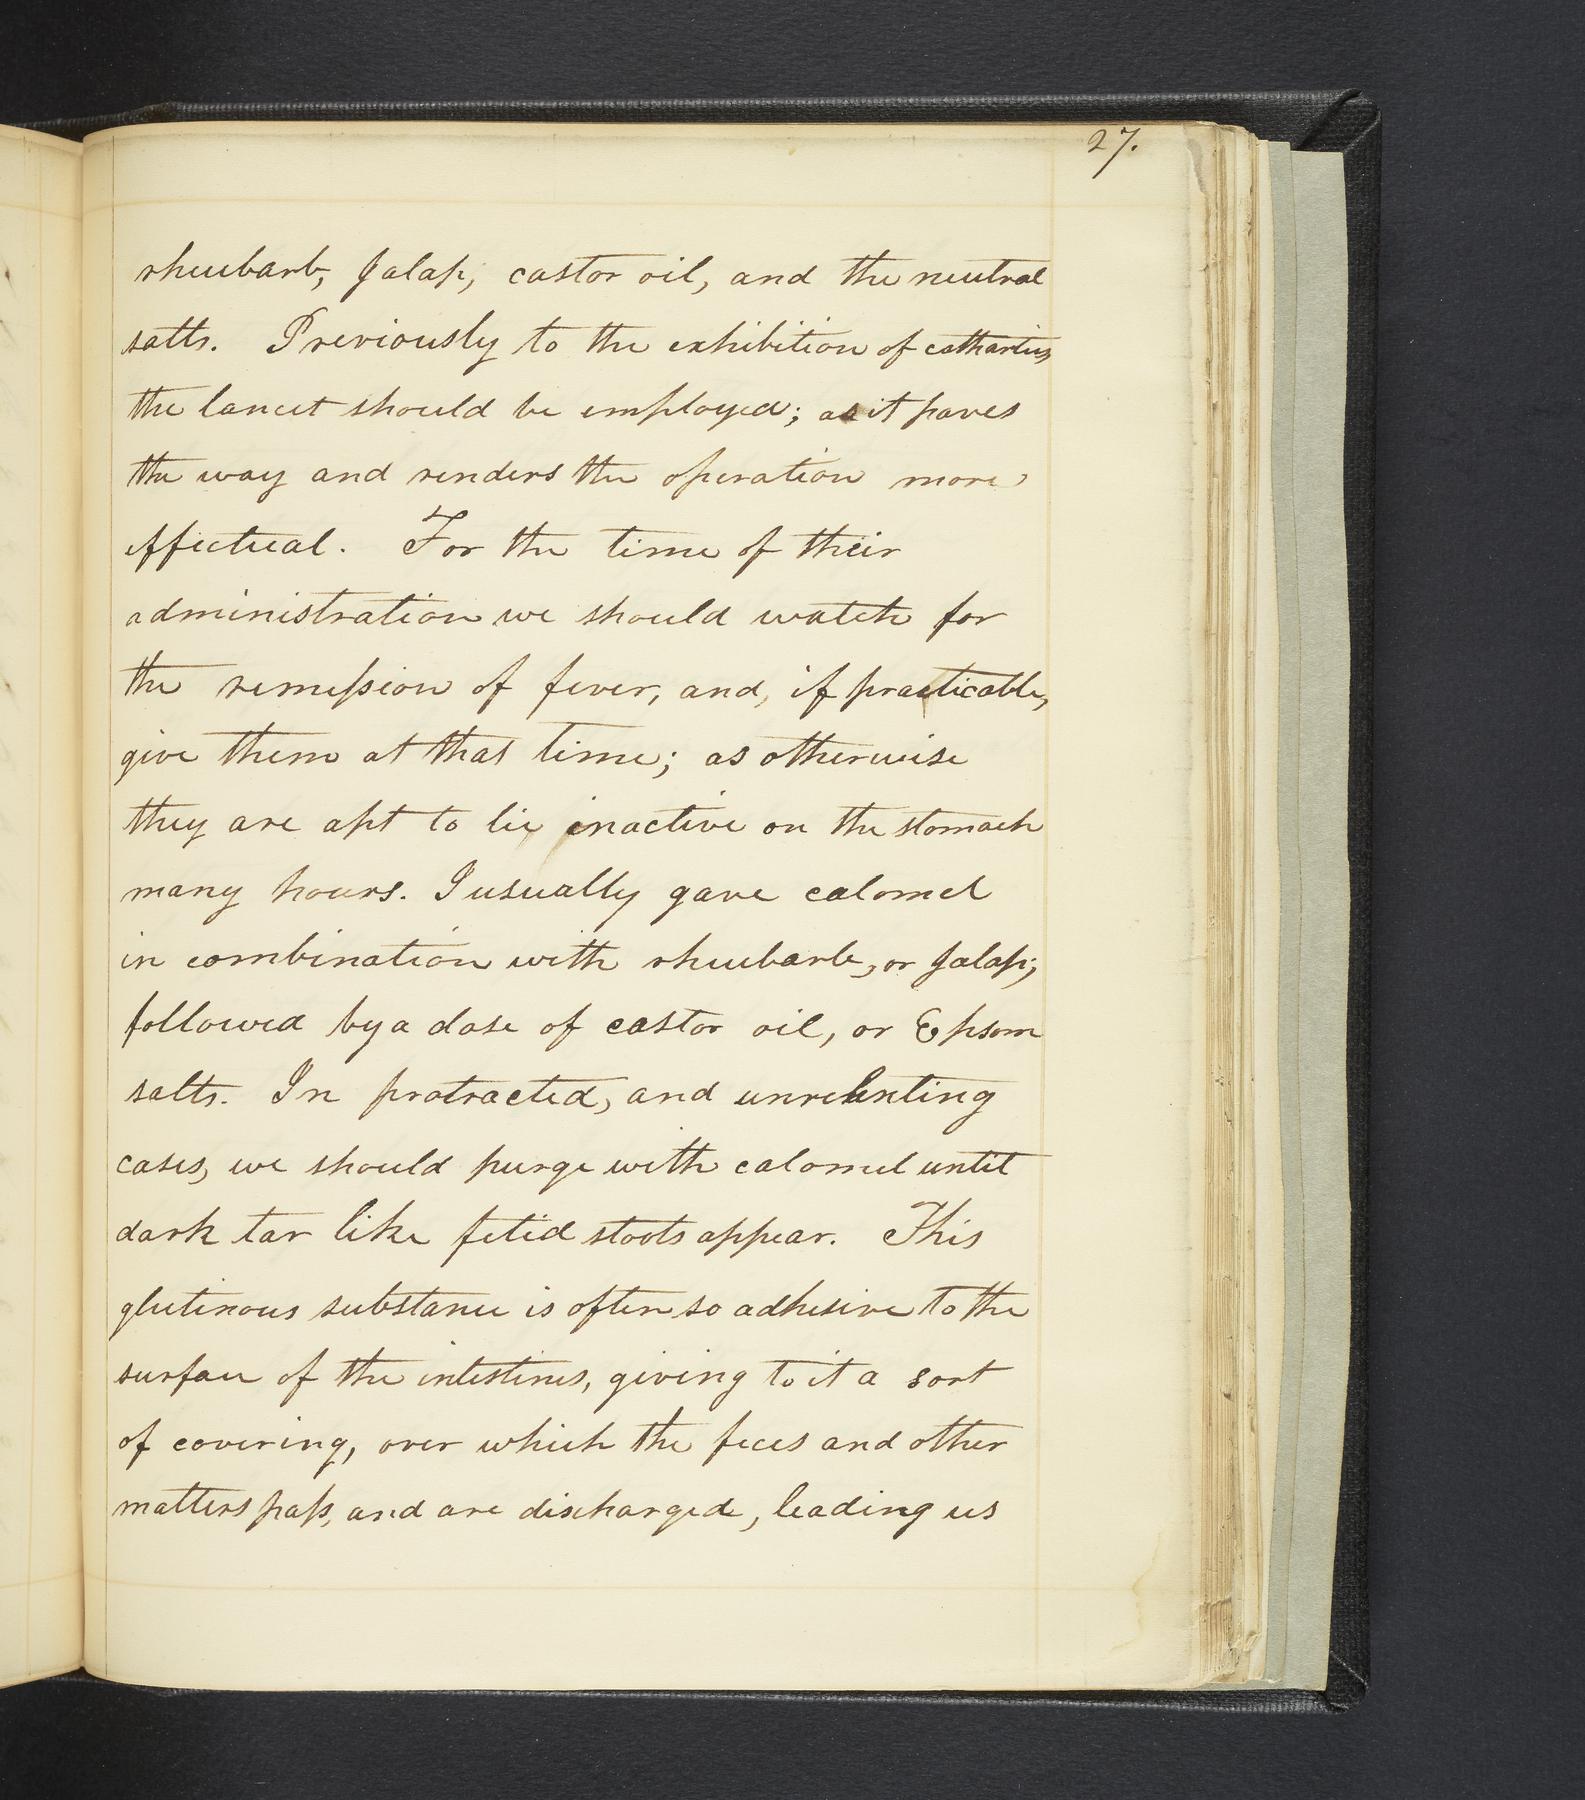 27.
rhuubarb, Jalap, castor oil, and the neutral
salts. Previously to the exhibition of cathartics
the lancet should be employed; as it paves
the way and renders the operation more
effectual. For the time of their
administration we should watch for
the remission of fever, and, if practicable,
give them at that time; as otherwise
they are apt to lie inactive on the stomach
many hours. I usually gave calomel
in combination with rhuubarb, or Jalap;
followed by a dose of castor oil, or Epsom
salts. In protracted, and unrelenting
cases, we should purge with calomel until
dark tar like fetid stools appear. This
glutinous substance is often so adhesive to the
surface of the intestines, giving to it a sort
of covering, over which the feces and other
matters pass, and are discharged, leading us